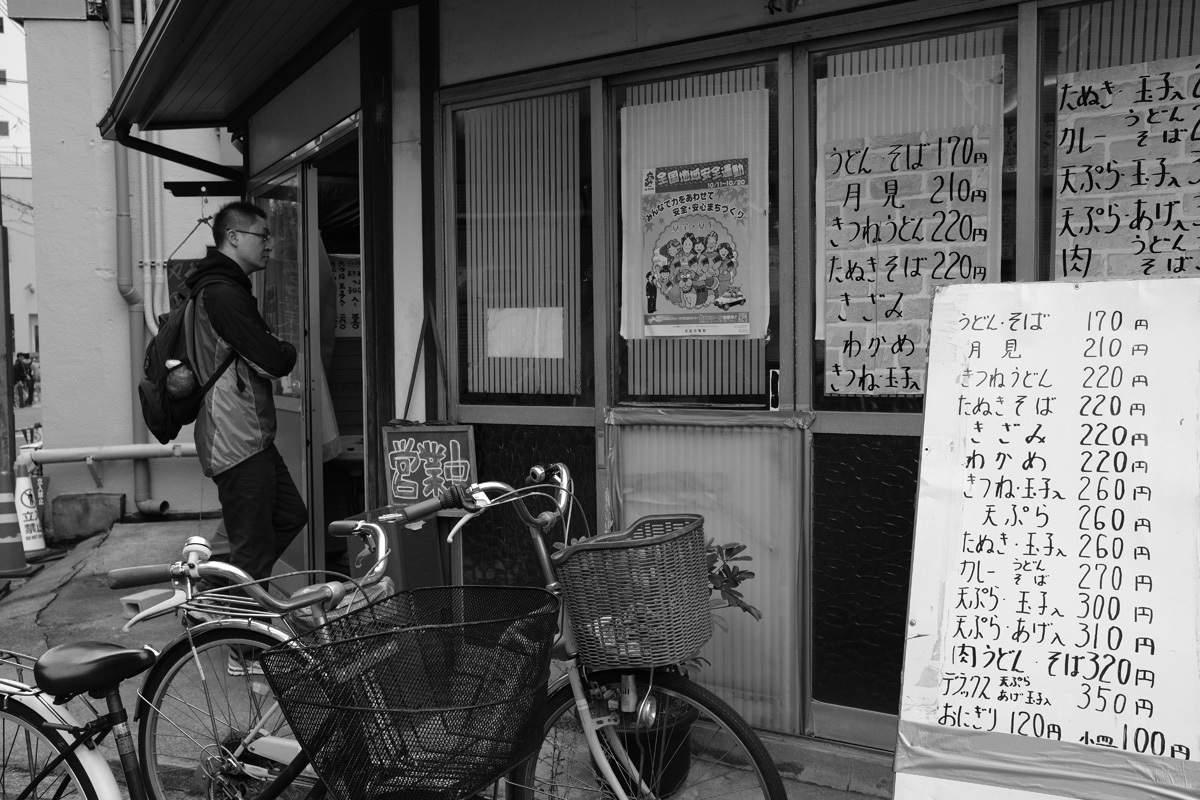 全国地域安全運動
10/11~10/20
みんなで力をあわせて
安全・安心まちづくり
うどん・そば 170円
月見 210円
きつねうどん 220円
たぬきそば 220円
きざみ
わかめ
きつね・玉子入
たぬき・玉子入
カレー うどん そば
天ぷら・玉子入
天ぷら・あげ入
肉 うどん そば
営業中
立入
禁止
うどん・そば 170円
月見 210円
きつねうどん 220円
たぬきそば 220円
きざみ 220円
わかめ 220円
きつね・玉子入 260円
天ぷら 260円
たぬき・玉子入 260円
カレー うどん そば 270円
天ぷら・玉子入 300円
天ぷら・あげ入 310円
肉うどん・そば 320円
デラックス 天ぷら あげ玉子入 350円
おにぎり 120円 小皿 100円